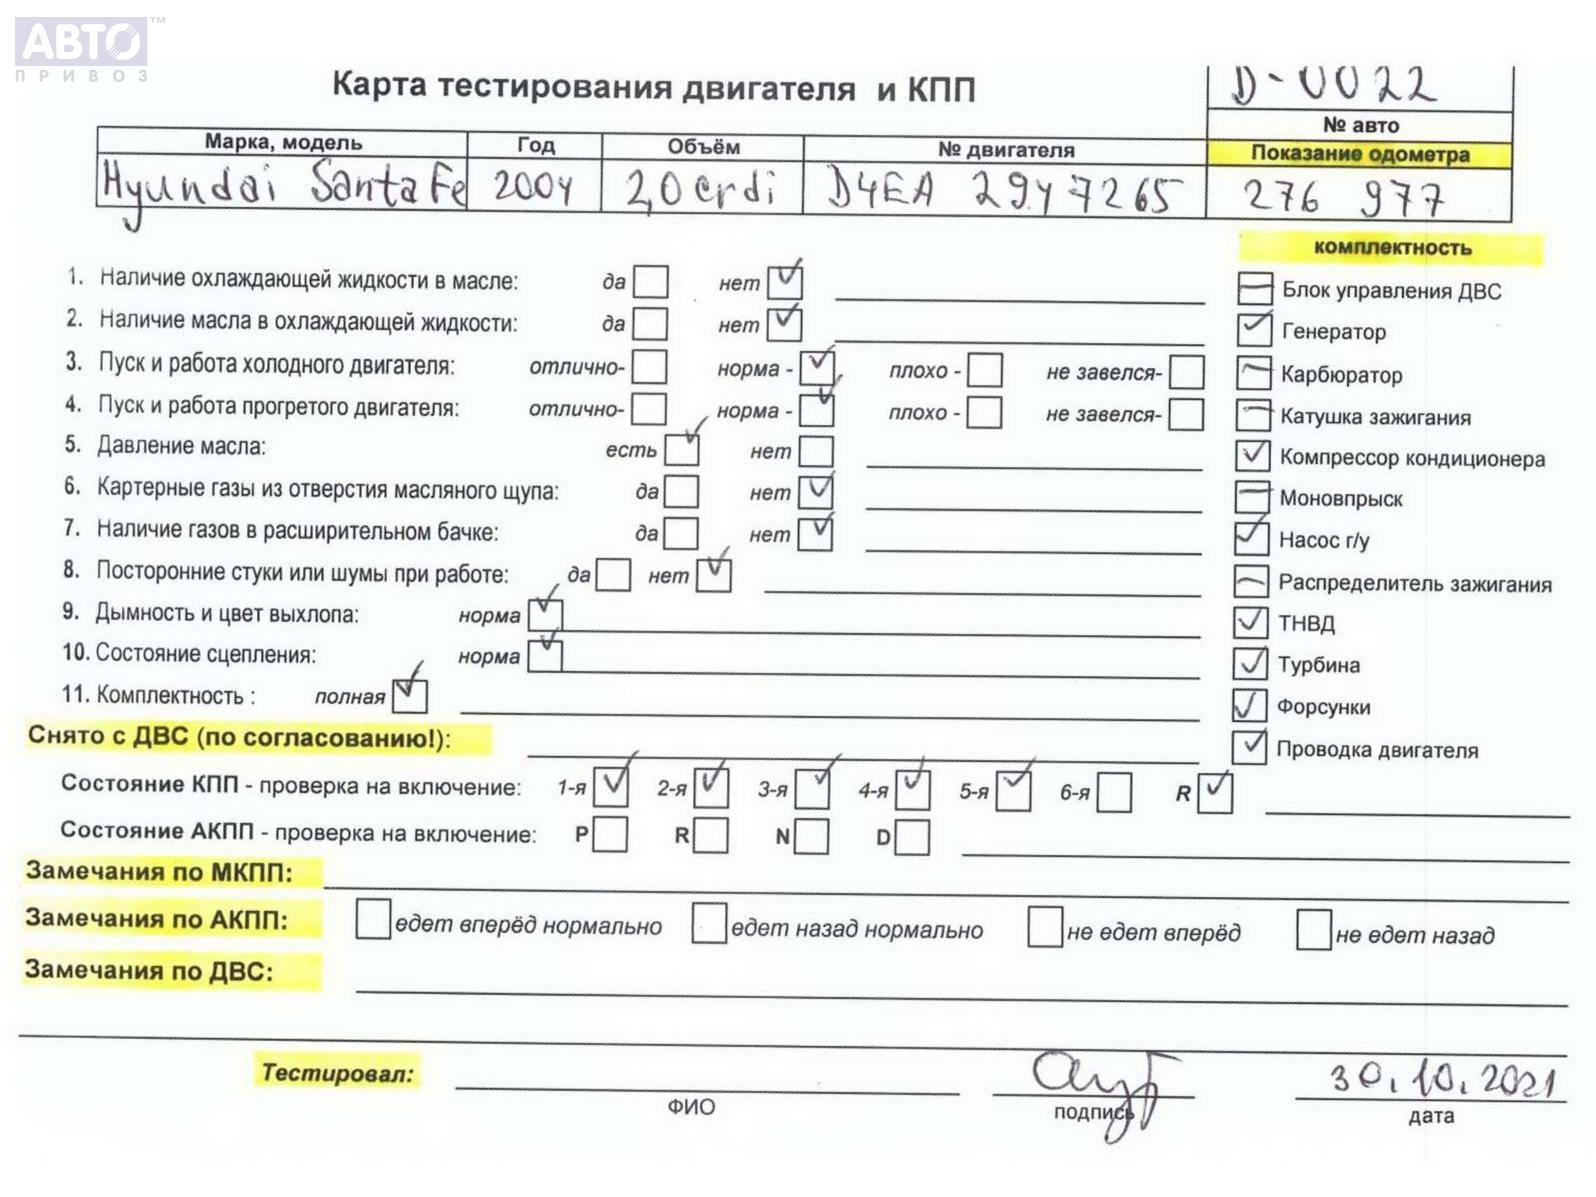 АВТО™
ПРИВОЗ
Карта тестирования двигателя и КПП
D-0022
№ авто
Марка, модель Год Объём № двигателя Показание одометра
Hyundai Santa Fe 2004 2,0 crdi D4EA 2947265 276 977
комплектность
1. Наличие охлаждающей жидкости в масле: да нет ✓
Блок управления ДВС
2. Наличие масла в охлаждающей жидкости: да нет ✓
Генератор ✓
3. Пуск и работа холодного двигателя: отлично- норма - ✓ плохо - не завелся-
Карбюратор
4. Пуск и работа прогретого двигателя: отлично- норма - ✓ плохо - не завелся-
Катушка зажигания
5. Давление масла: есть ✓ нет
Компрессор кондиционера ✓
6. Картерные газы из отверстия масляного щупа: да нет ✓
Моновпрыск
7. Наличие газов в расширительном бачке: да нет ✓
Насос г/у ✓
8. Посторонние стуки или шумы при работе: да нет ✓
Распределитель зажигания
9. Дымность и цвет выхлопа: норма ✓
ТНВД ✓
10. Состояние сцепления: норма ✓
Турбина ✓
11. Комплектность : полная ✓
Форсунки ✓
Снято с ДВС (по согласованию!):
Проводка двигателя ✓
Состояние КПП - проверка на включение: 1-я ✓ 2-я ✓ 3-я ✓ 4-я ✓ 5-я ✓ 6-я R ✓
Состояние АКПП - проверка на включение: P R N D
Замечания по МКПП:
Замечания по АКПП: едет вперёд нормально едет назад нормально не едет вперёд не едет назад
Замечания по ДВС:
Тестировал: 30.10.2021
ФИО подпись дата